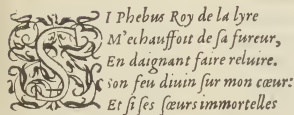 SI Phebus Roy de la lyre
M'echauffoit de ſa fureur,
En daignant faire reluire.
Son feu diuin ſur mon cœur:
Et ſi ſes ſœurs immortelles